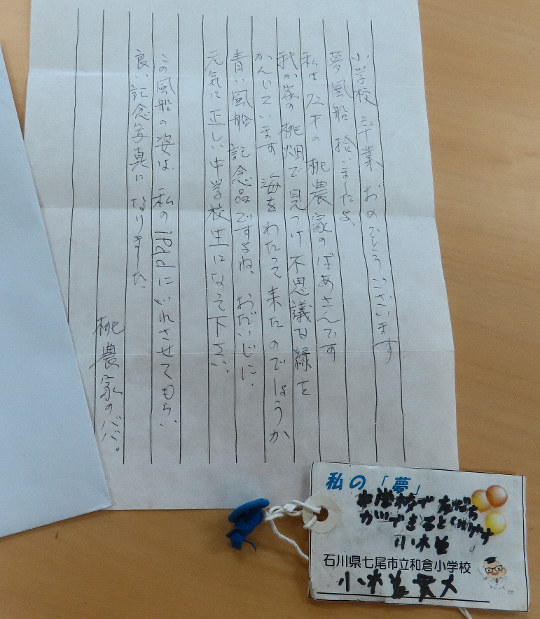 小学校 卒業 おめでとうございます
夢風船 拾いましたよ
私は 松下の 桃農家のばあさんです
我が家の 桃畑で見つけ不思議な縁を
かんじています 海をわたって来たのでしょうか
青い風船 記念品ですよね おだいじに、
元気に正しい中学校生になって下さい、
この風船の姿は 私の iPad にいれさせてもらい
良い記念写真になりました、
桃農家のババ。
私の「夢」
中学校で友だち
ができるといいです
石川県七尾市立和倉小学校